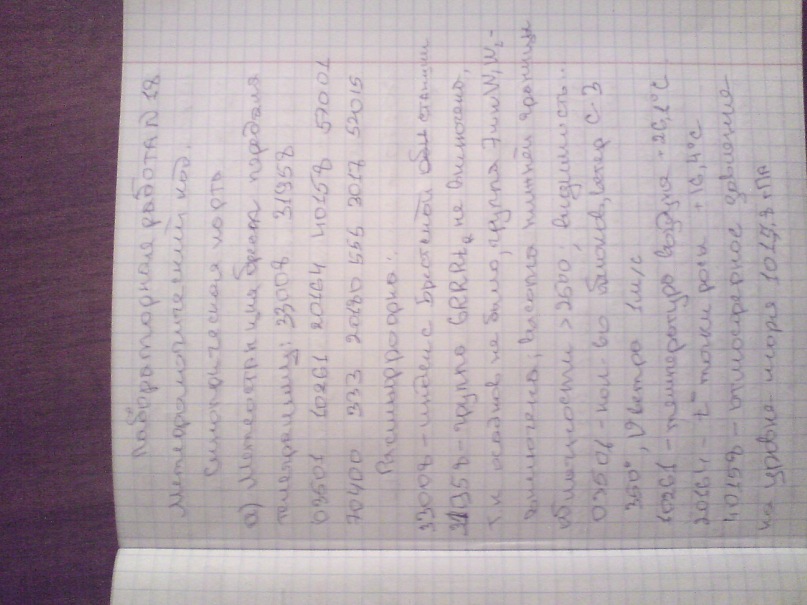 Лабораторная работа N 18
Метеорологический код.
Синоптическая карта
а) Метеостанция Брест передала
телеграмму: 33008 31958
03501 10261 20164 40158 57001
70400 333 20180 555 3017 52015
Расшифровка:
33008 - индекс Брестской станции
31958 - группа 6RRRtR не включено,
т.к осадков не было, группа 7wwW1W2 -
включена, высота нижней границы
облачности > 2500, видимость.
03501 - кол-во облаков, ветер С-З
350°, V ветра 1м/с
10261 - температура воздуха +26,1°С.
20164 - t° точки росы +16,4°С
40158 - атмосферное давление
на уровне моря 1015,8 гПа